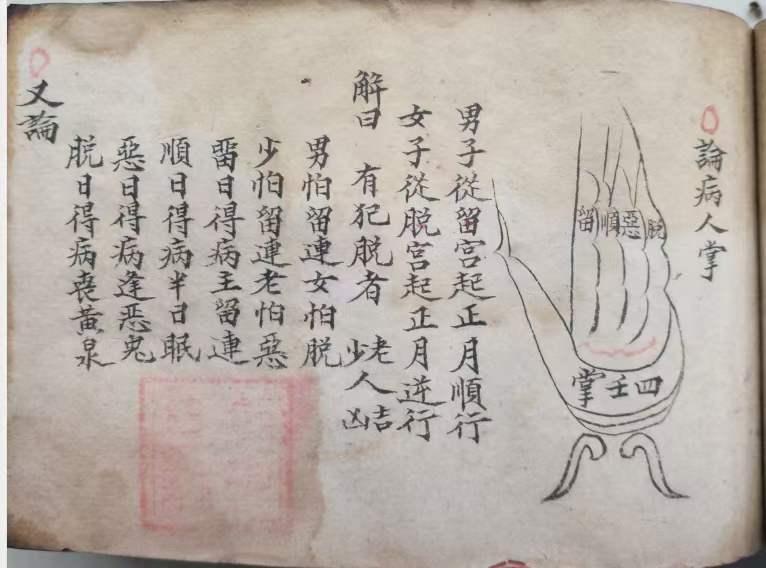 論病人掌
留順惡脱
四壬掌
男子從留宫起正月順行
女子從脱宫起正月逆行
解曰 有犯脱者 老人吉
少凶
男怕留連女怕脱
少怕留連老怕惡
畱日得病主留連
順日得病半日眠
惡日得病逢惡鬼
脱日得病喪黄泉
又論